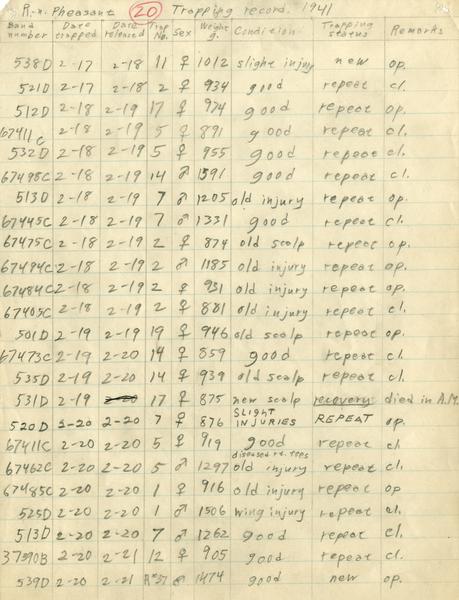 R.-n. Pheasant 20 Trapping record. 1941
Band number Date trapped Date released Trap No. Sex Weight g. Condition Trapping status Remarks
538D 2-17 2-18 11 ♀ 1012 slight injury new op.
521D 2-17 2-18 2 ♀ 934 good repeat cl.
512D 2-18 2-19 17 ♀ 974 good repeat op.
67411C 2-18 2-19 5 ♀ 891 good repeat cl.
532D 2-18 2-19 5 ♀ 955 good repeat cl.
67498C 2-18 2-19 14 ♂ 1391 good repeat cl.
513D 2-18 2-19 7 ♂ 1205 old injury repeat op.
67445C 2-18 2-19 7 ♂ 1331 good repeat cl.
67475C 2-18 2-19 2 ♀ 874 old scalp repeat op.
67494C 2-18 2-19 2 ♂ 1185 old injury repeat op.
67484C 2-18 2-19 2 ♀ 931 old injury repeat op.
67405C 2-18 2-19 2 ♀ 881 old injury repeat cl.
501D 2-19 2-19 19 ♀ 946 old scalp repeat op.
67473C 2-19 2-20 14 ♀ 859 good repeat cl.
535D 2-19 2-20 14 ♀ 939 old scalp repeat cl.
531D 2-19 17 ♀ 875 new scalp recovery died in A.M.
520D 2-20 2-20 7 ♀ 876 SLIGHT INJURIES REPEAT op.
67411C 2-20 2-20 5 ♀ 919 good repeat cl.
67462C 2-20 2-20 5 ♂ 1297 diseased rt. toes old injury repeat cl.
67485C 2-20 2-20 1 ♀ 916 old injury repeat op
525D 2-20 2-20 1 ♂ 1506 wing injury repeat cl.
513D 2-20 2-20 7 ♂ 1262 good repeat cl.
37390B 2-20 2-21 12 ♀ 905 good repeat cl.
539D 2-20 2-21 ♂ 1474 good new op.